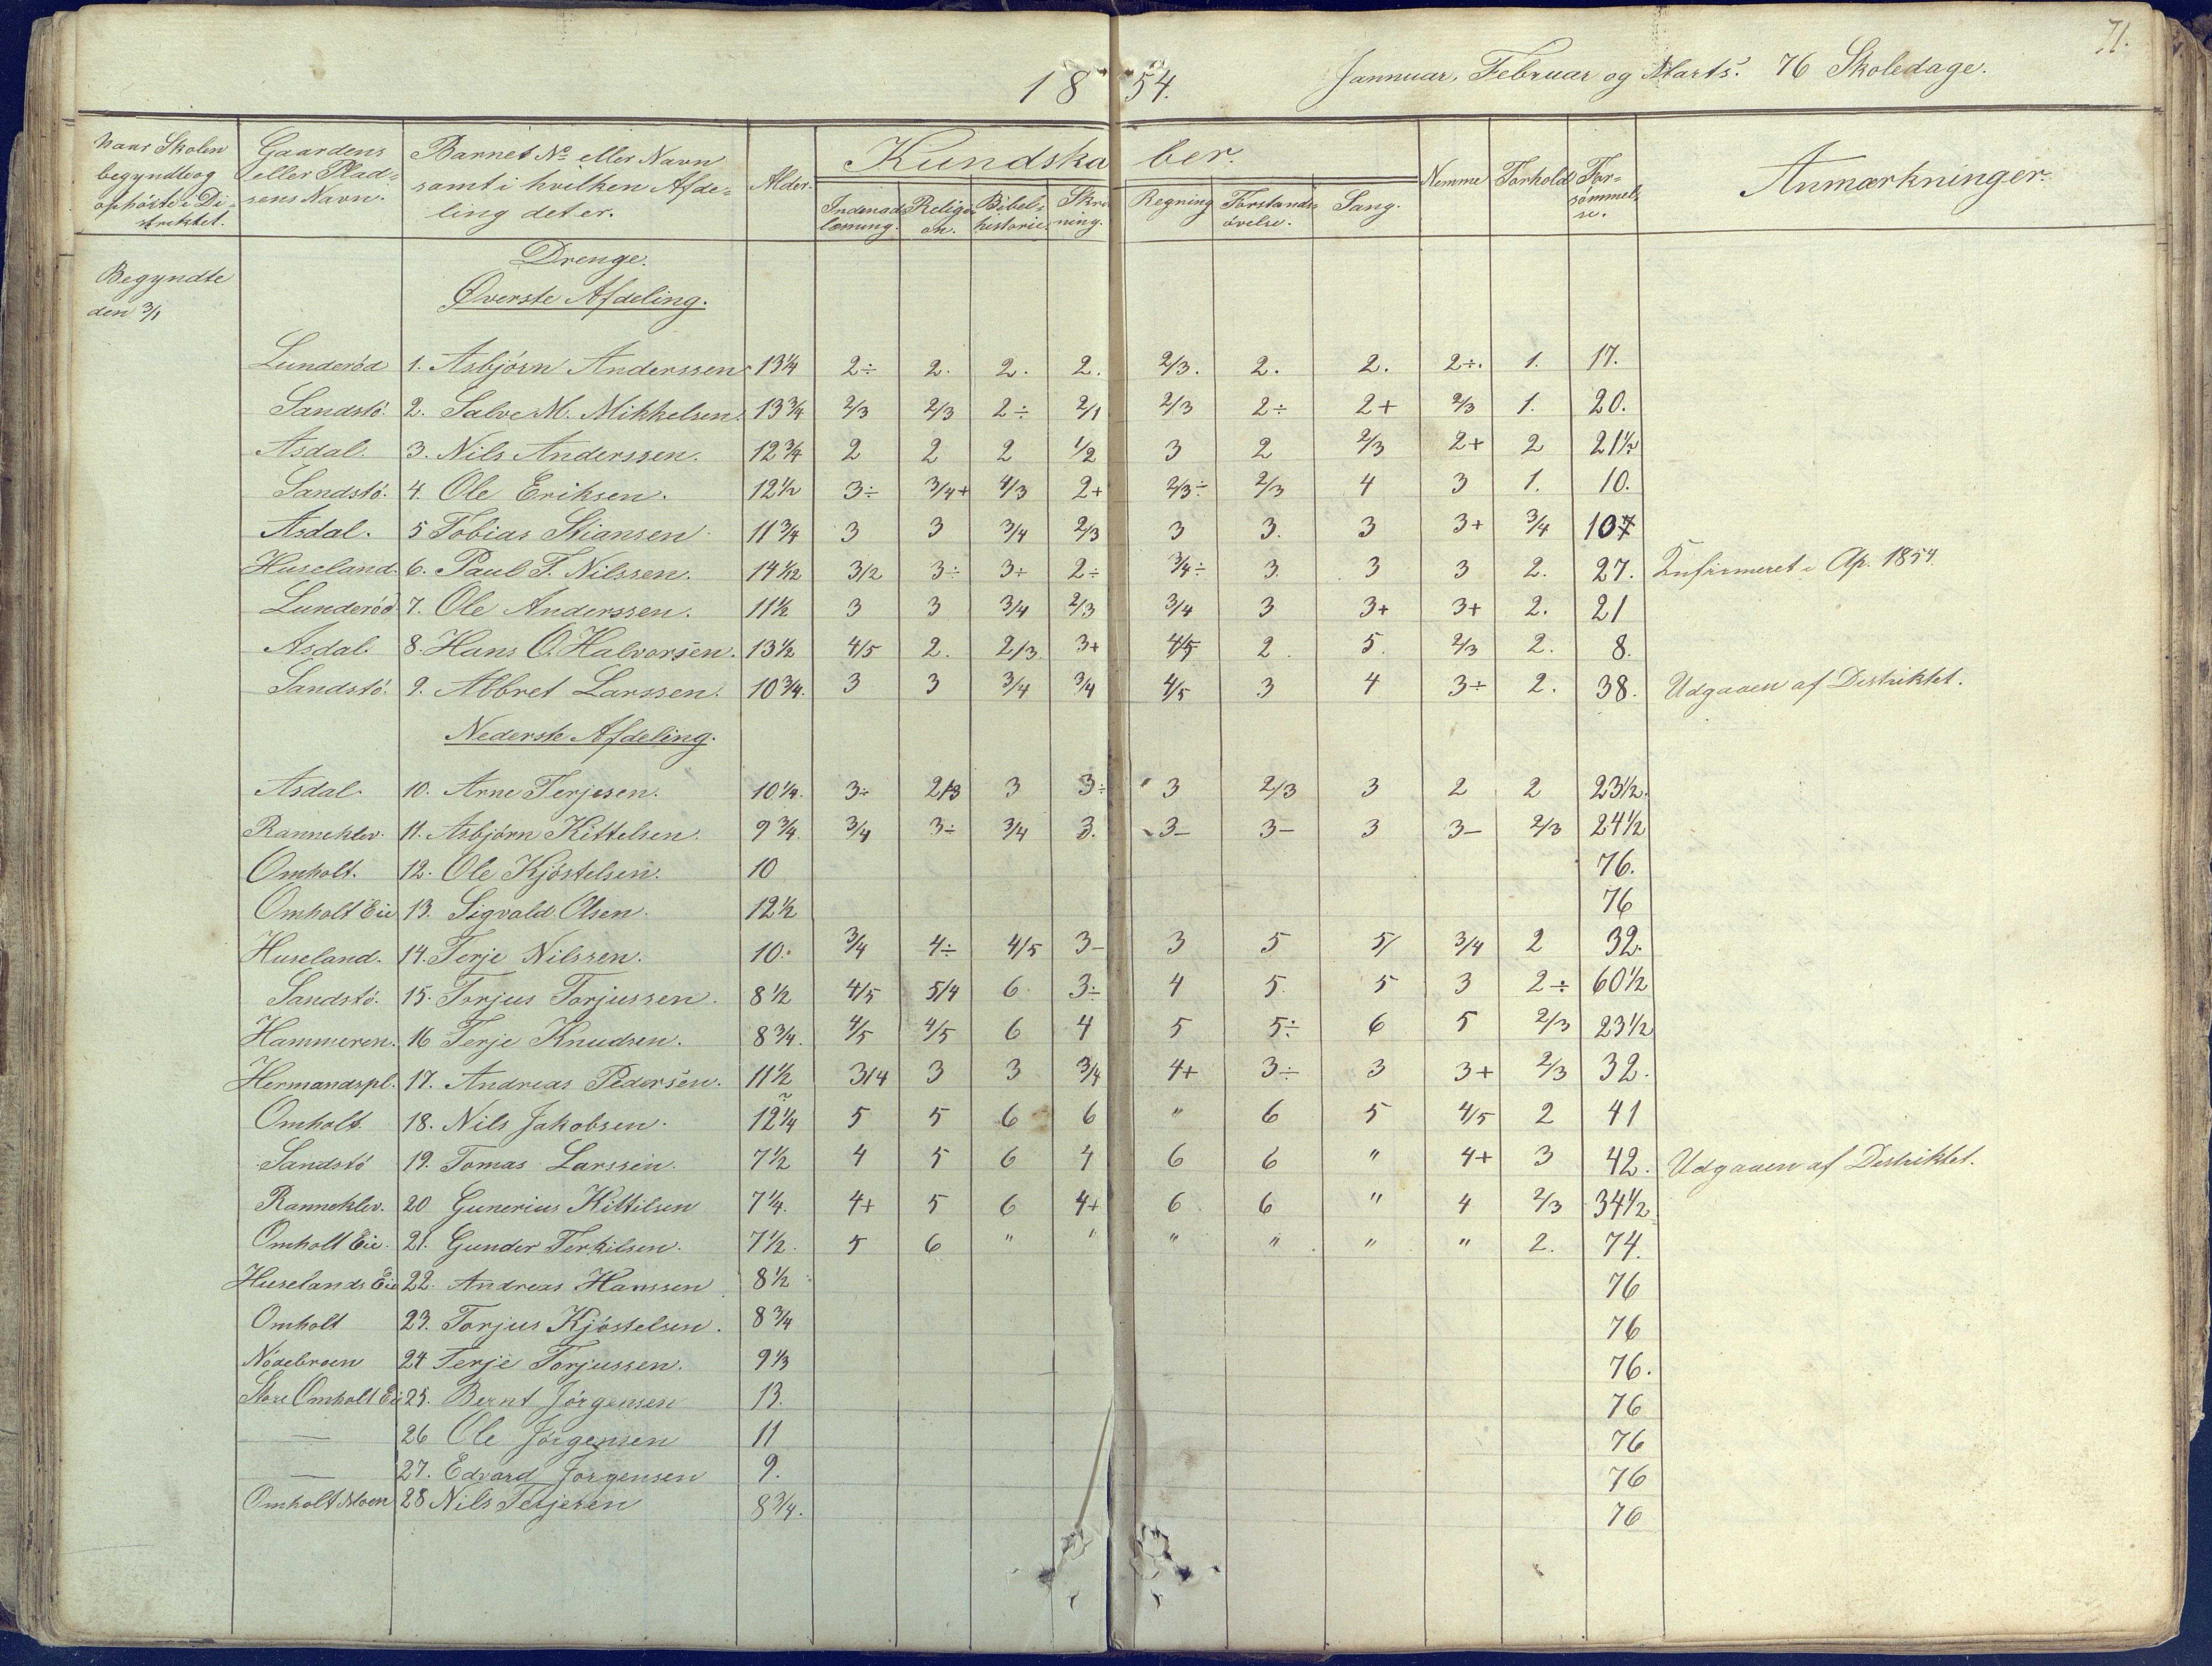 71.
1854. Jannuar, Februar og Marts. 76 Skoledage.
Naar Skolen begyndte og ophörte i Distriktet. | Gaardens eller Pladsens Navn. | Barnets No eller Navn samt i hvilken Afdeling det er. | Alder. | Kundskaber. | Nemme | Forhold | Forsömmelse. | Anmærkninger.
Indenadslæsning. | Religion. | Bibelhistorie. | Skrivning. | Regning | Forstandsövelse. | Sang.
Begyndte den 3/1
Drenge.
Øverste Afdeling.
Lunderöd 1. Asbjörn Anderssen 13 1/4 2÷ 2. 2. 2. 2/3. 2. 2. 2÷. 1. 17.
Sandstö. 2. Salve M. Mikkelsen. 13 3/4 2/3 2/3 2÷ 2/1 2/3 2÷ 2+ 2/3 1. 20.
Asdal. 3. Nils Anderssen. 12 3/4 2 2 2 1/2 3 2 2/3 2+ 2 21 1/2
Sandstö. 4. Ole Eriksen. 12 1/2 3÷ 3/4+ 4/3 2+ 2/3÷ 2/3 4 3 1. 10.
Asdal. 5 Tobias Stiansen 11 3/4 3 3 3/4 2/3 3 3. 3 3+ 3/4 107
Huseland. 6. Paul T. Nilssen. 14 1/12 3/2 3÷ 3÷ 2÷ 3/4÷ 3. 3 3 2. 27. Ap. 1854.
Lunderöd 7. Ole Anderssen. 11 1/2 3 3 3/4 2/3 3/4 3 3+ 3+ 2. 21
Asdal. 8. Hans O. Halvorsen. 13 1/2 4/5 2. 2/3. 3+ 4/5 2. 5. 2/3 2. 8.
Sandstö. 9. Abbret Larssen. 10 3/4. 3 3 3/4 3/4 4/5 3 4 3÷ 2. 38. Udgaaen af Destriktet.
Nederste Afdeling.
Asdal. 10. Arne Terjesen. 10 1/4. 3÷ 2/3 3 3÷ 3 2/3 3 2 2 23 1/2.
Ranneklev. 11. Asbjörn Kittelsen. 9 3/4. 3/4 3÷ 3/4 3. 3– 3– 3 3– 2/3 24 1/2
Omholt. 12. Ole Kjöstelsen. 10 76.
Omholt Eie 13. Sigvald Olsen. 12 1/2 76
Huseland. 14. Terje Nilssen. 10. 3/4 4÷ 4/5 3– 3 5 5/ 3/4 2 32.
Sandstö. 15. Torjus Torjussen. 8 1/2 4/5 5/4 6 3÷ 4 5. 5 3 2÷ 60 1/2
Hammeren. 16 Terje Knudsen. 8 3/4. 4/5 4/5 6 4 5 5÷ 6 5 2/3 23 1/2
Hermandspl. 17. Andreas Pedersen. 11 1/2 3/4 3 3 3/4 4+ 3÷ 3 3+ 2/3 32.
Omholt 18. Nils Jakobsen. 12 1/4 5 5 6 6 " 6 5 4/5 2 41
Sandstö 19. Tomas Larssen. 7 1/2 4 5 6 4 6 6 " 4+ 3 42. Udgaaen af Destriktet.
Ranneklev. 20 Gunerius Kittilsen 7 1/4. 4+ 5 6 4+ 6 6 " 4 2/3 34 1/2
Omholt Eie. 21. Gunder Terkilsen. 7 1/2. 5 6 " " " " " " 2. 74.
Huselands Eie 22. Andreas Hanssen 8 1/2 76
Omholt 23. Torjus Kjöstelsen. 8 3/4 76
Nödebroen 24 Terje Torjussen. 9 1/3 76.
Store Omholt Eie 25. Bernt Jörgensen 13. 76
— 26 Ole Jörgensen 11 76
— 27. Edvard Jorgensen 9. 76
Omholt Moen 28 Nils Terjesen 8 3/4. 76